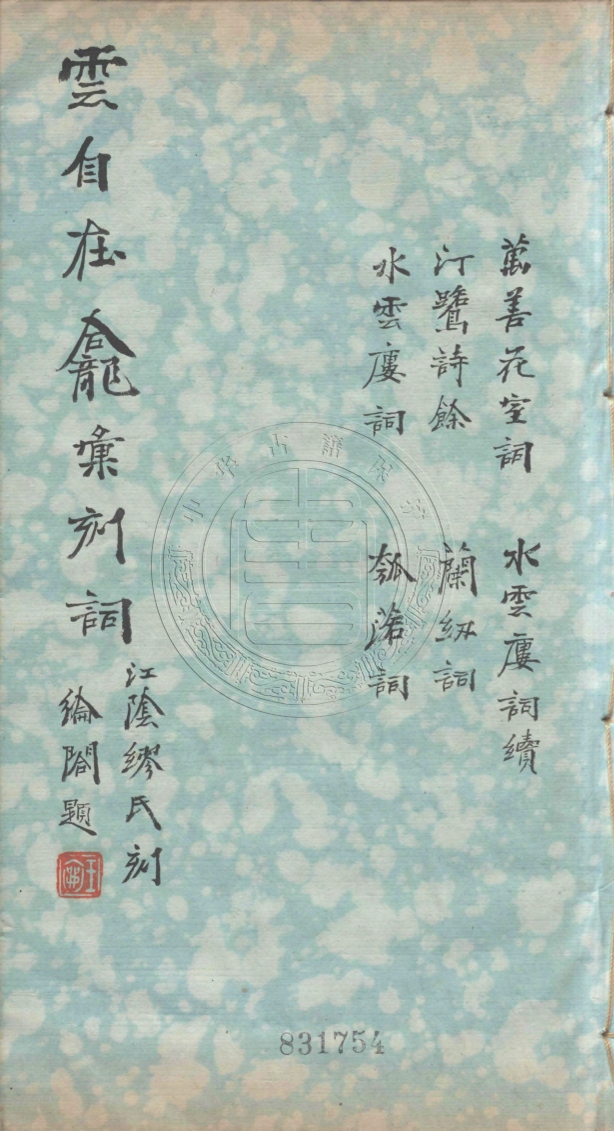 萬善花室詞 水雲廔詞續
汀鷺詩餘 蘭紉詞
水雲廔詞 瓠落詞
江陰繆氏刻
雲自在龕彙刻詞
綸閣題
831754